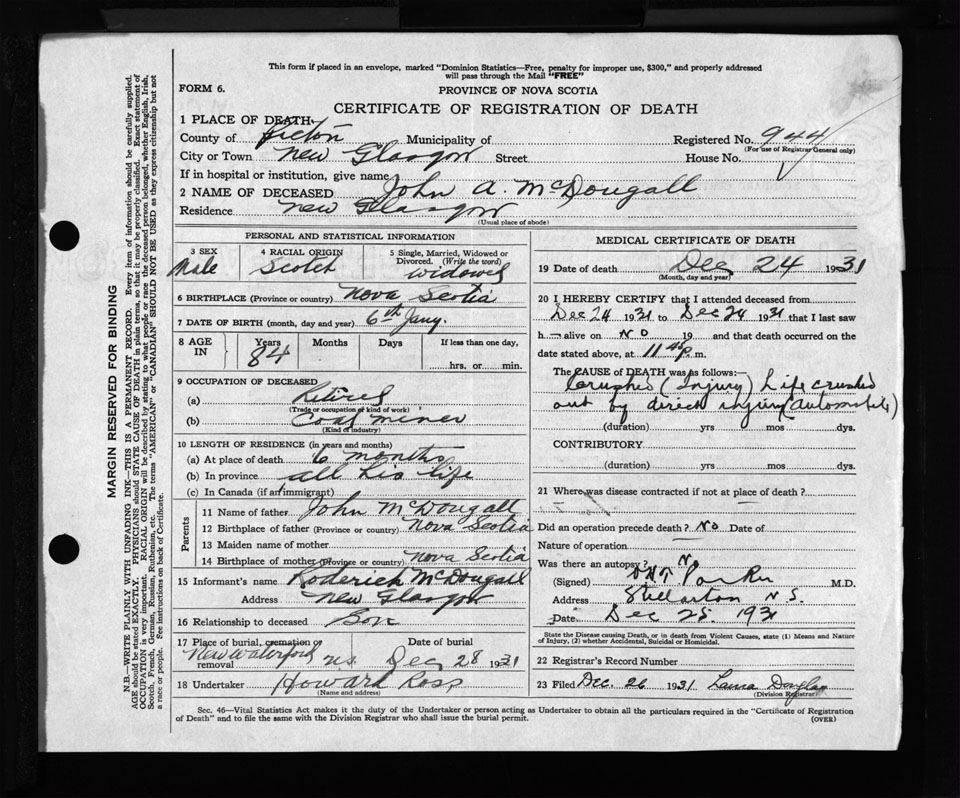 This form if placed in an envelope, marked "Dominion Statistics—Free, penalty for improper use, $300," and properly addressed
will pass through the Mail "FREE"
FORM 6.
PROVINCE OF NOVA SCOTIA
CERTIFICATE OF REGISTRATION OF DEATH
1 PLACE OF DEATH:
County of Pictou Municipality of Registered No. 944
(For use of Registrar General only)
City or Town New Glasgow Street House No.
If in hospital or institution, give name
2 NAME OF DECEASED John A. McDougall
Residence New Glasgow
(Usual place of abode)
PERSONAL AND STATISTICAL INFORMATION
3 SEX 4 RACIAL ORIGIN 5 Single, Married, Widowed or
Divorced. (Write the word)
Male Scotch widowed
6 BIRTHPLACE (Province or country) Nova Scotia
7 DATE OF BIRTH (month, day and year) 6th Jany.
8 AGE IN Years Months Days If less than one day,
84 hrs. or min.
9 OCCUPATION OF DECEASED
(a) Retired
(Trade or occupation or kind of work)
(b) Coal miner
(Kind of industry)
10 LENGTH OF RESIDENCE (in years and months)
(a) At place of death 6 months
(b) In province all his life
(c) In Canada (if an immigrant)
Parents
11 Name of father John McDougall
12 Birthplace of father (Province or country) Nova Scotia
13 Maiden name of mother
14 Birthplace of mother (Province or country) Nova Scotia
15 Informant's name Roderick McDougall
Address New Glasgow
16 Relationship to deceased Son
17 Place of burial, cremation or removal Date of burial
New Waterford N.S. Dec 28 1931
18 Undertaker Howard Ross
(Name and address)
MEDICAL CERTIFICATE OF DEATH
19 Date of death Dec 24 1931
(Month, day and year)
20 I HEREBY CERTIFY that I attended deceased from
Dec 24 1931 to Dec 24 1931 that I last saw
h— alive on NO 19 and that death occurred on the
date stated above, at 11 m.
The CAUSE OF DEATH was as follows:—
Crushed (Injury) Life crushed
out by direct injury (automobile)
(duration) yrs mos dys.
CONTRIBUTORY
(duration) yrs mos dys.
21 Where was disease contracted if not at place of death?
Did an operation precede death? NO Date of
Nature of operation
Was there an autopsy? N
(Signed) Parker M.D.
Address Stellarton N.S.
Date Dec 25. 1931
State the Disease causing Death, or in death from Violent Causes, state (1) Means and Nature
of Injury, (2) whether Accidental, Suicidal or Homicidal.
22 Registrar's Record Number
23 Filed Dec. 26 1931 Laura Douglas
(Division Registrar)
Sec. 46—Vital Statistics Act makes it the duty of the Undertaker or person acting as Undertaker to obtain all the particulars required in the "Certificate of Registration
of Death" and to file the same with the Division Registrar who shall issue the burial permit.
(OVER)
MARGIN RESERVED FOR BINDING
N.B.—WRITE PLAINLY WITH UNFADING INK—THIS IS A PERMANENT RECORD. Every item of information should be carefully supplied.
AGE should be stated EXACTLY. PHYSICIANS should STATE CAUSE OF DEATH in plain terms, so that it may be properly classified. Exact statement of
OCCUPATION is very important. RACIAL ORIGIN will be described by stating to what people or race the deceased person belonged, whether English, Irish,
Scotch, French, German, Russian, Ruthenian, etc. The terms "AMERICAN" or "CANADIAN" SHOULD NOT BE USED as they express citizenship but not
a race or people. See instructions on back of Certificate.